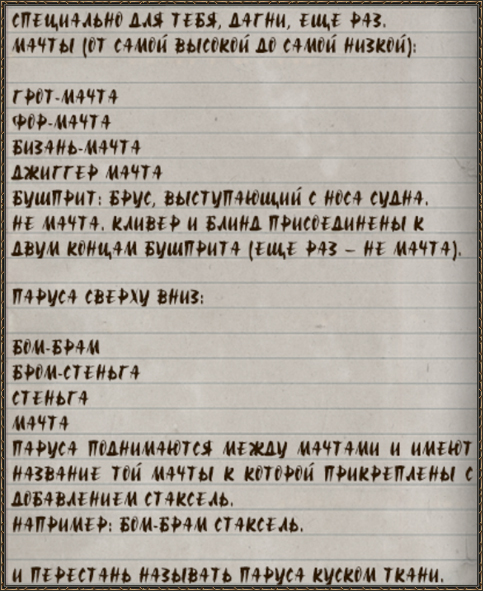 СПЕЦИАЛЬНО ДЛЯ ТЕБЯ, ДАГНИ, ЕЩЕ РАЗ.
МАЧТЫ (ОТ САМОЙ ВЫСОКОЙ ДО САМОЙ НИЗКОЙ):
ГРОТ-МАЧТА
ФОР-МАЧТА
БИЗАНЬ-МАЧТА
ДЖИГГЕР МАЧТА
БУШПРИТ: БРУС, ВЫСТУПАЮЩИЙ С НОСА СУДНА.
НЕ МАЧТА. КЛИВЕР И БЛИНД ПРИСОЕДИНЕНЫ К
ДВУМ КОНЦАМ БУШПРИТА (ЕЩЕ РАЗ – НЕ МАЧТА).
ПАРУСА СВЕРХУ ВНИЗ:
БОМ-БРАМ
БРОМ-СТЕНЬГА
СТЕНЬГА
МАЧТА
ПАРУСА ПОДНИМАЮТСЯ МЕЖДУ МАЧТАМИ И ИМЕЮТ
НАЗВАНИЕ ТОЙ МАЧТЫ К КОТОРОЙ ПРИКРЕПЛЕНЫ С
ДОБАВЛЕНИЕМ СТАКСЕЛЬ.
НАПРИМЕР: БОМ-БРАМ СТАКСЕЛЬ.
И ПЕРЕСТАНЬ НАЗЫВАТЬ ПАРУСА КУСКОМ ТКАНИ.